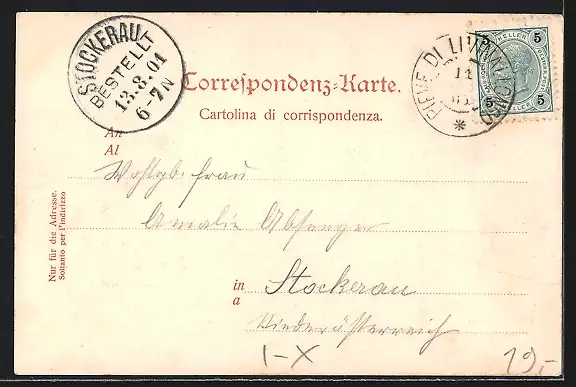 STOCKERAU
BESTELLT
13.8.01
6-7N
PIEVE DI LIVINALLONGO
11
01
5 HELLER 5
5 5
Correspondenz-Karte.
Cartolina di corrispondenza.
An
Al
Wohlgb. Frau
Amalie
in Stockerau
a
Niederösterreich
Nur für die Adresse.
Soltanto per l'indirizzo
I-X
19,-